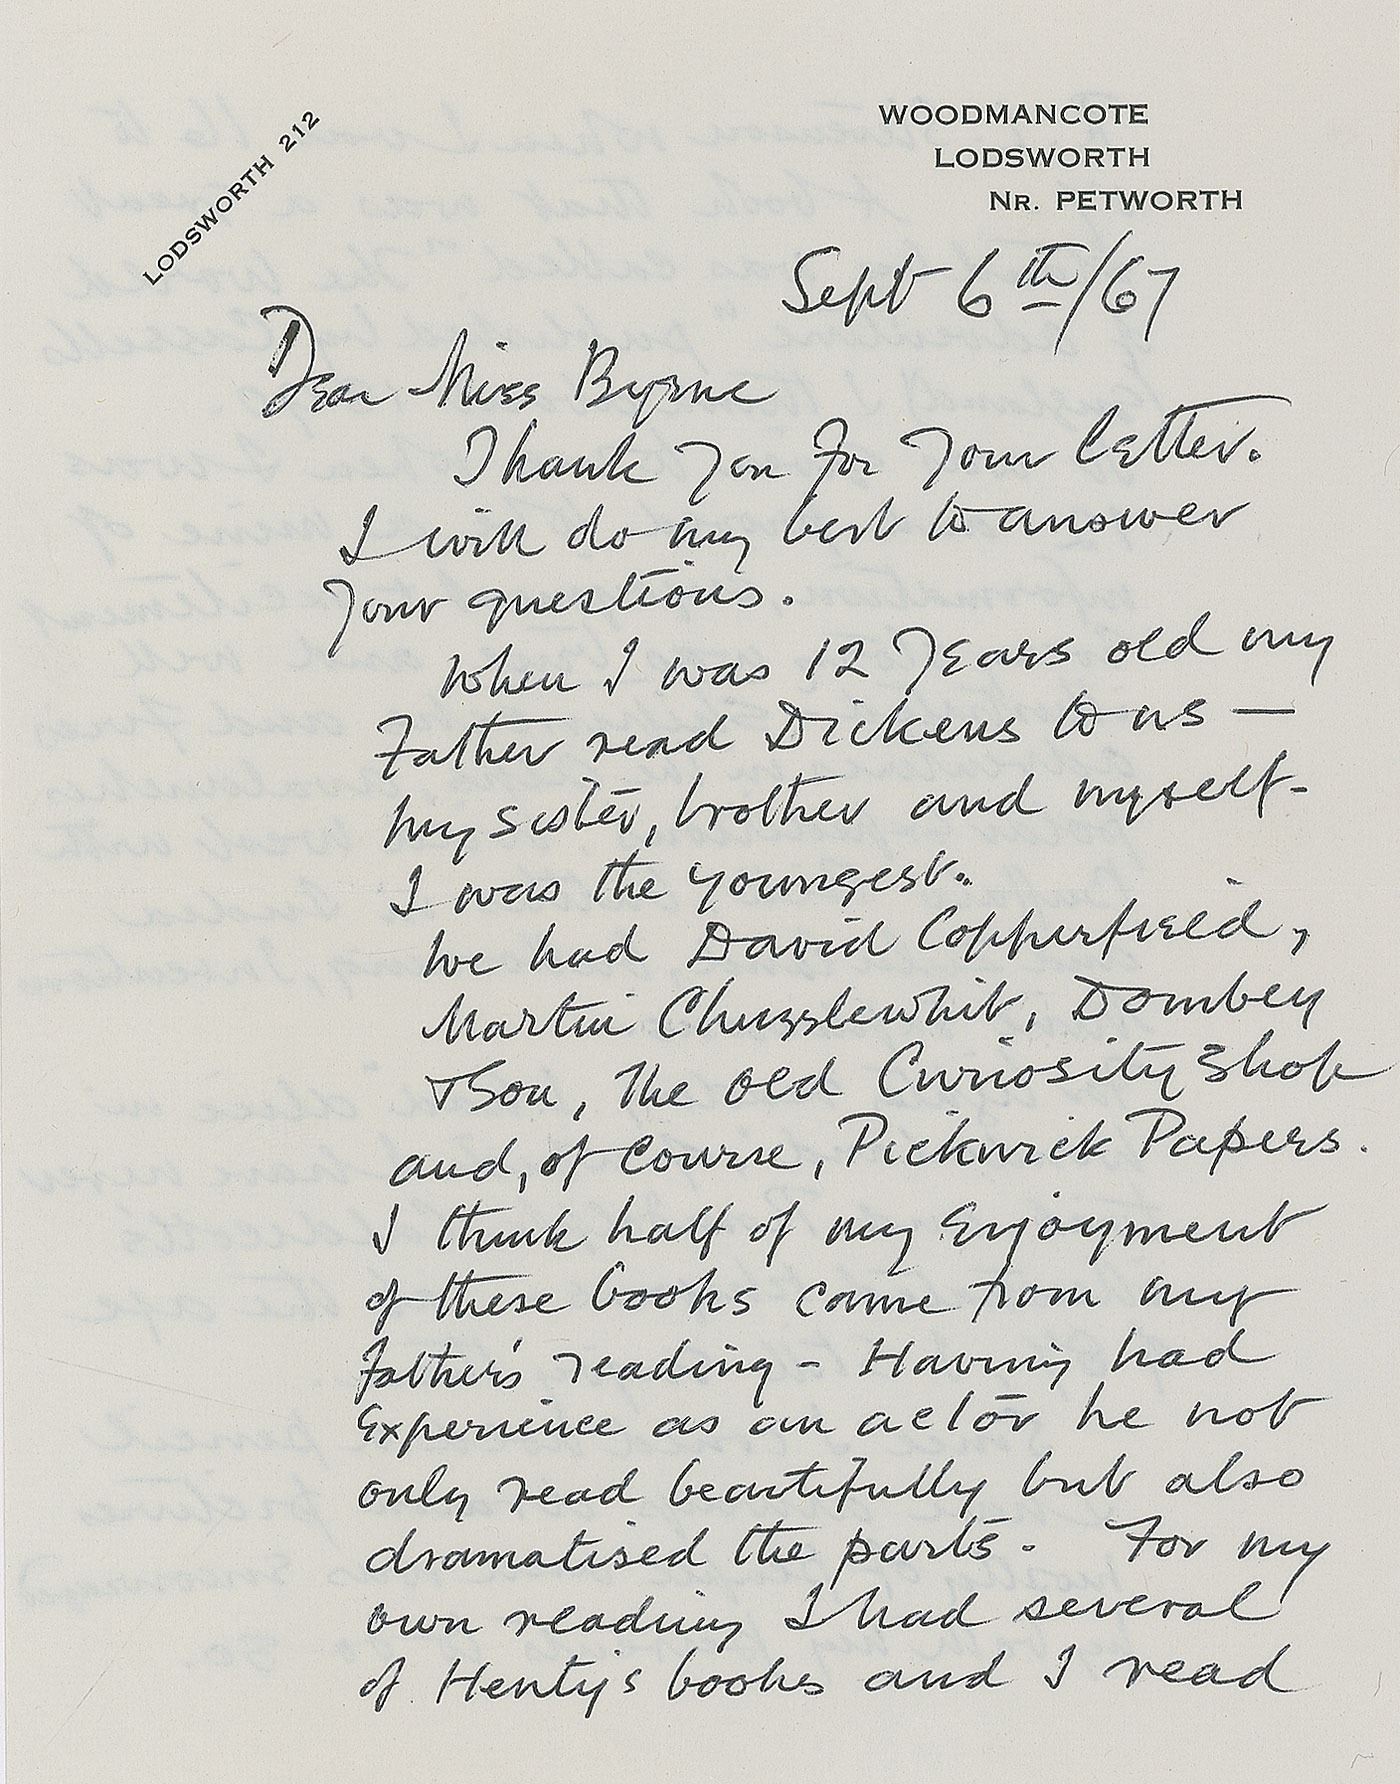 LODSWORTH 212
WOODMANCOTE
LODSWORTH
NR. PETWORTH
Sept 6th/67
Dear Miss Byrne
Thank you for your letter.
I will do my best to answer
your questions.
When I was 12 years old my
Father read Dickens to us —
my sister, brother and myself -
I was the youngest.
We had David Copperfield,
Martin Chuzzlewhit, Dombey
& Son, The Old Curiosity Shop
and, of course, Pickwick Papers.
I think half of my enjoyment
of these books came from my
father's reading - Having had
experience as an actor he not
only read beautifully but also
dramatised the parts. For my
own reading I had several
of Henty's books and I read